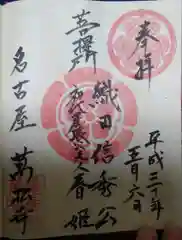 奉拝
平成三十年
五月六日
菩提所
織田信秀公
春姫
名古屋
萬松寺